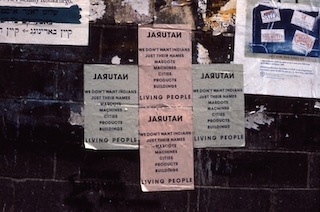 LARUTAN
WE DON'T WANT INDIANS
JUST THEIR NAMES
MASCOTS
MACHINES
CITIES
PRODUCTS
BUILDINGS
LIVING PEOPLE
LARUTAN
WE DON'T WANT INDIANS
JUST THEIR NAMES
MASCOTS
MACHINES
CITIES
PRODUCTS
BUILDINGS
LIVING PEOPLE
LARUTAN
WE DON'T WANT INDIANS
JUST THEIR NAMES
MASCOTS
MACHINES
CITIES
PRODUCTS
BUILDINGS
LIVING PEOPLE
LARUTAN
WE DON'T WANT INDIANS
JUST THEIR NAMES
MASCOTS
MACHINES
CITIES
PRODUCTS
BUILDINGS
LIVING PEOPLE